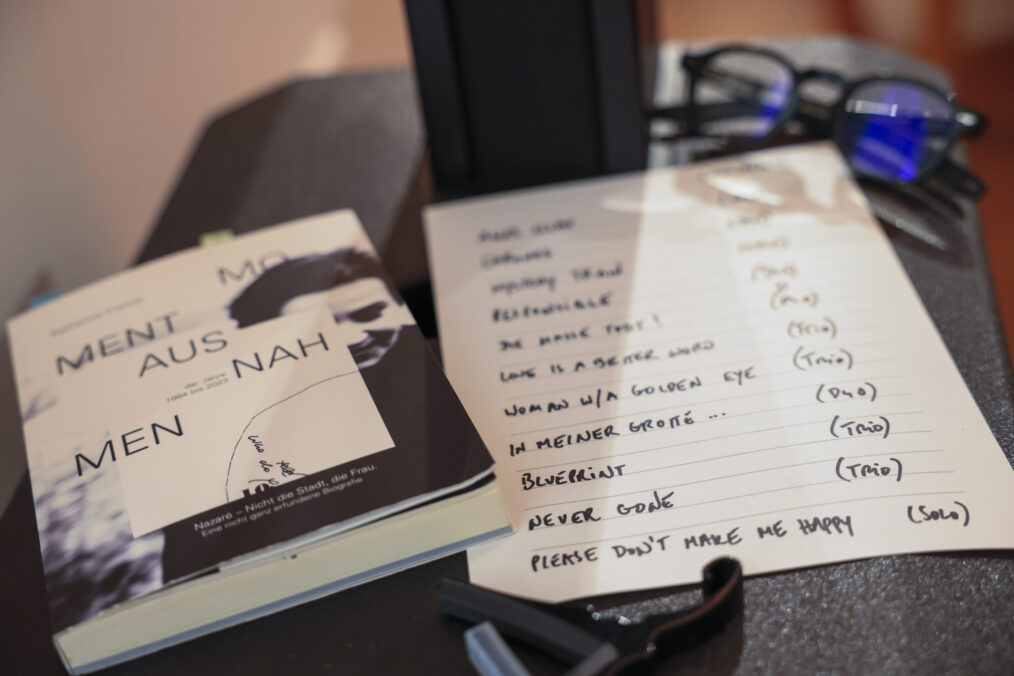 MO
MENT
AUS
NAH
der Jahre
bis 2023
MEN
Who do
Nazaré – Nicht die Stadt, die Frau.
Eine nicht ganz erfundene Biografie
MYSTERY TRAIN
RESPONSIBLE
! (DUO)
LOVE IS A BETTER WORD (TRIO)
WOMAN W/A GOLDEN EYE (TRIO)
IN MEINER GROTTE ... (DUO)
BLUEPRINT (TRIO)
NEVER GONE (TRIO)
PLEASE DON'T MAKE ME HAPPY (SOLO)